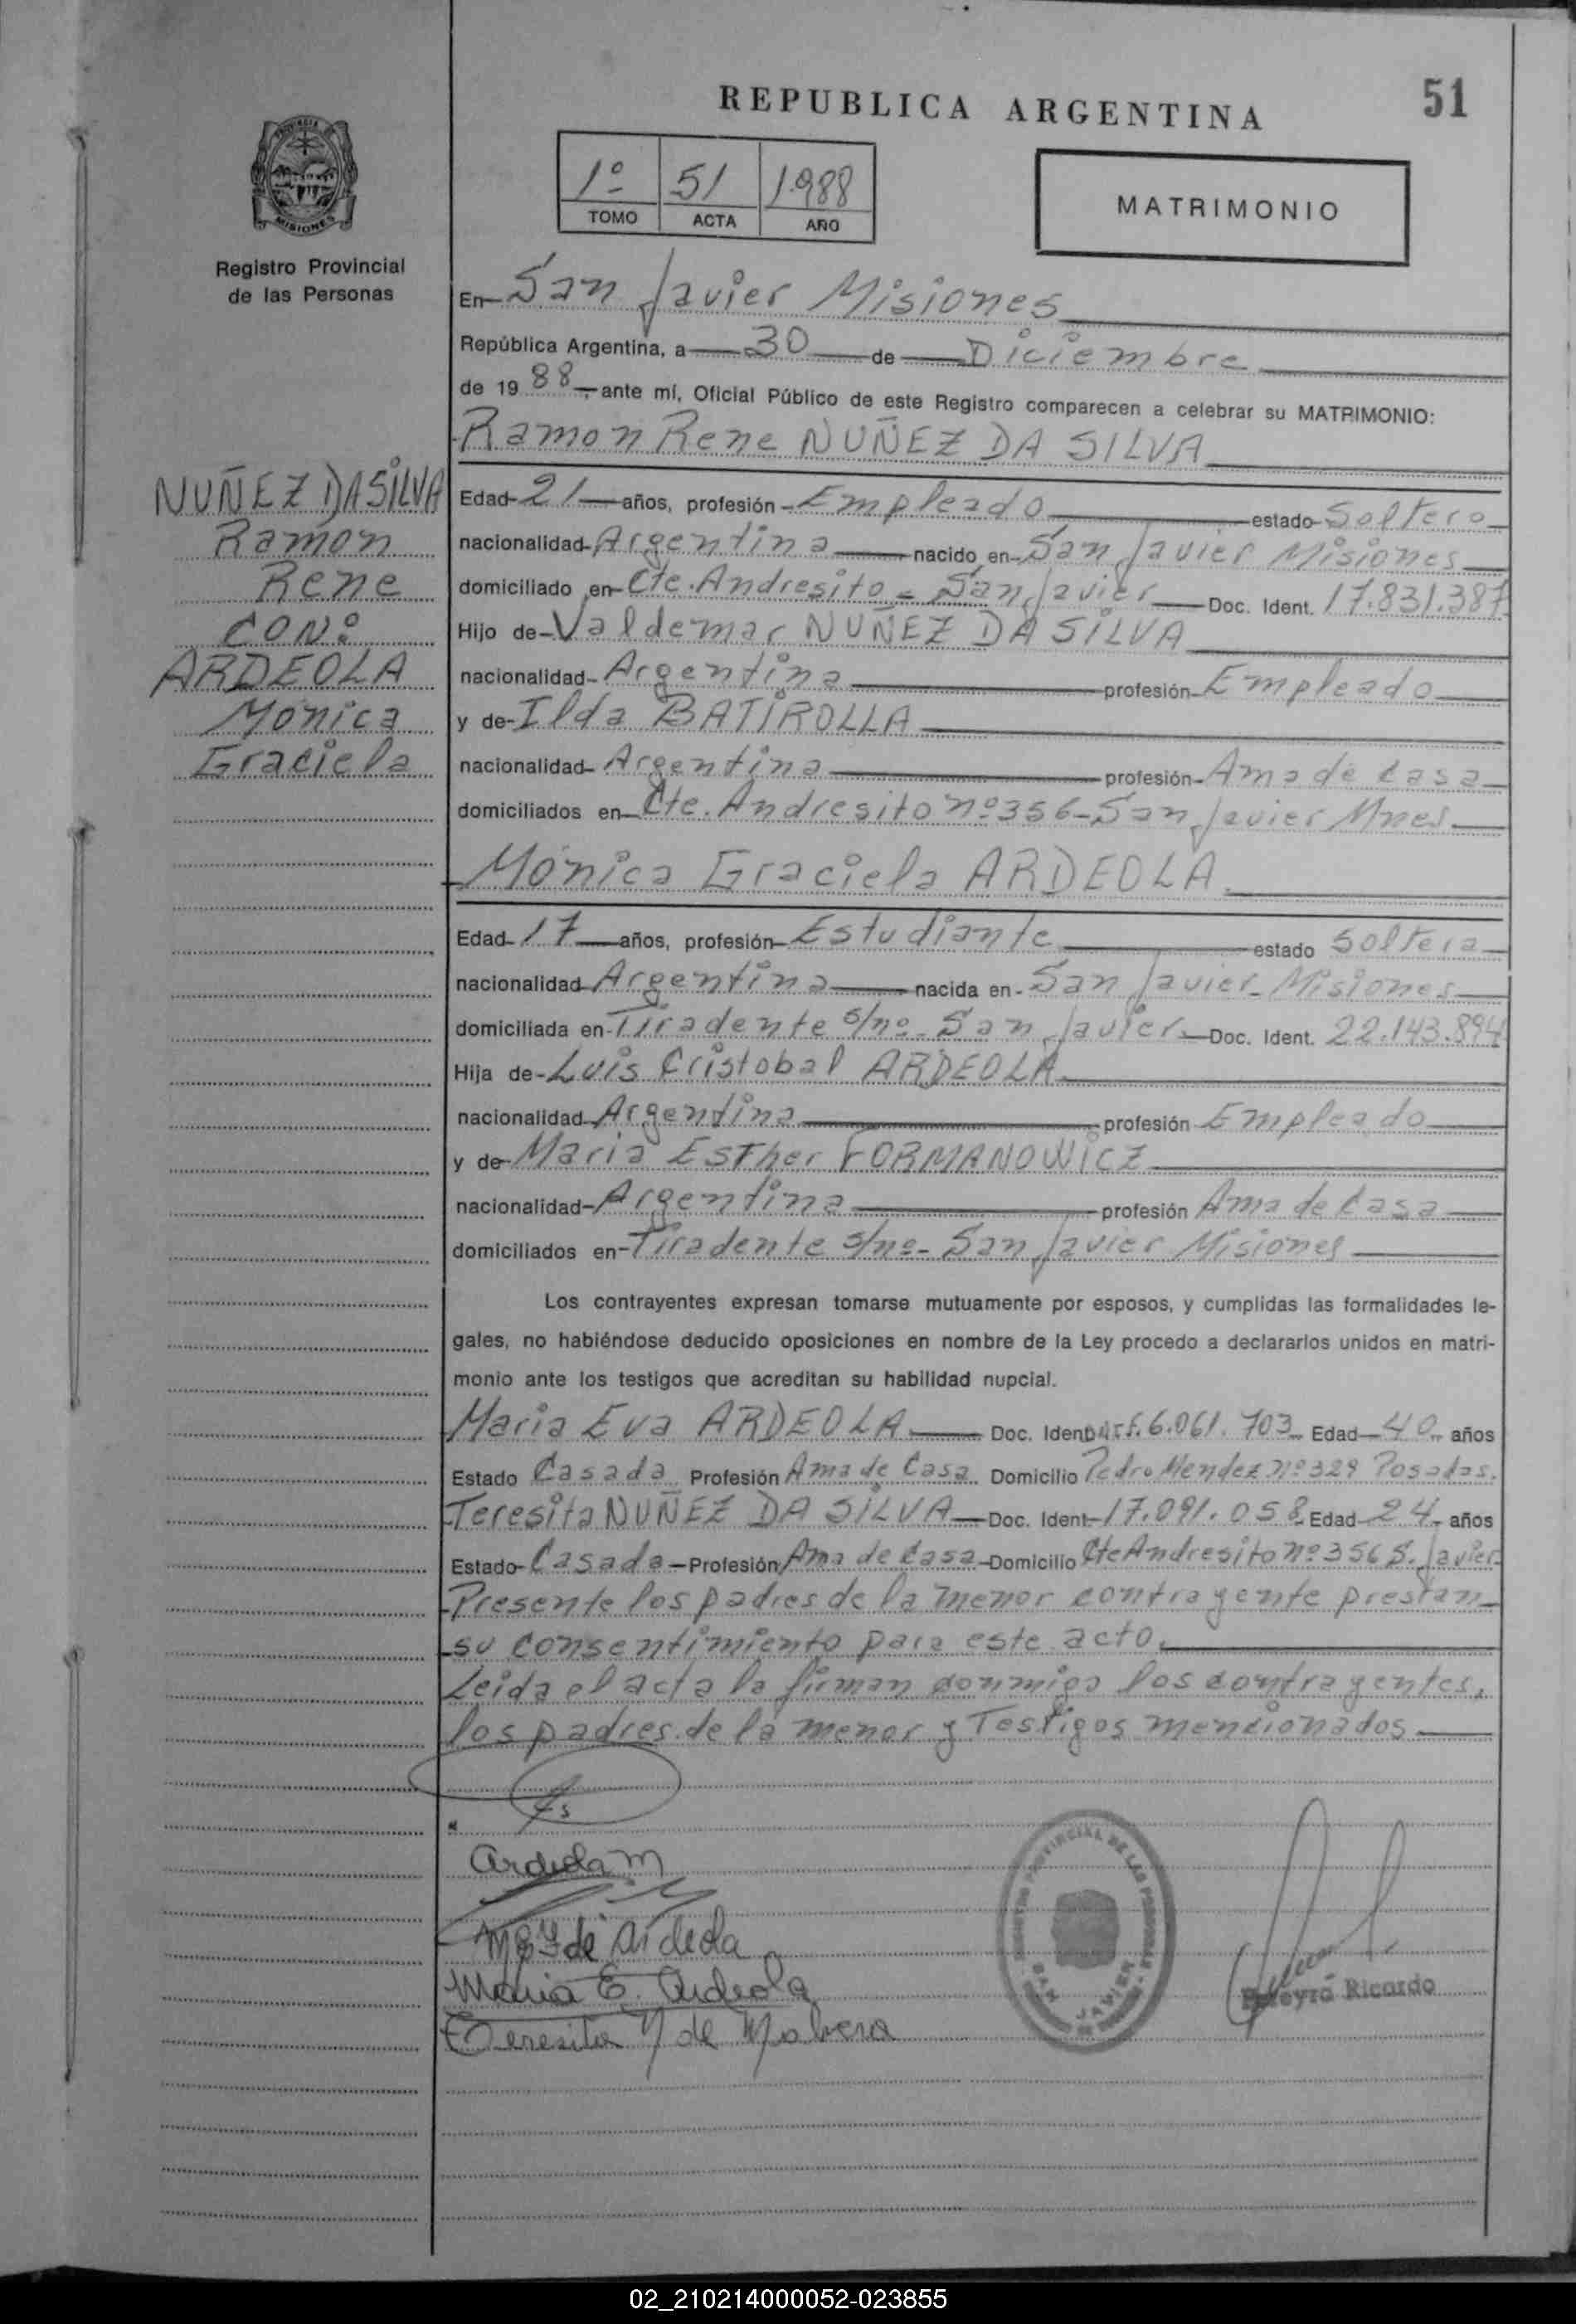 REPUBLICA ARGENTINA
51
1º 51 1.988
TOMO ACTA AÑO
MATRIMONIO
MISIONES
Registro Provincial
de las Personas
En San Javier Misiones
República Argentina, a 30 de Diciembre
de 19 88 ante mí, Oficial Público de este Registro comparecen a celebrar su MATRIMONIO:
Ramon Rene NUÑEZ DA SILVA
NUÑEZ DA SILVA
Ramon
Rene
CON:
ARDEOLA
Mónica
Graciela
Edad 21 años, profesión Empleado estado Soltero
nacionalidad Argentina nacido en San Javier Misiones
domiciliado en Cte. Andresito - San Javier Doc. Ident. 17.831.387
Hijo de Valdemar NUÑEZ DA SILVA
nacionalidad Argentina profesión Empleado
y de Ilda BATIROLLA
nacionalidad Argentina profesión Ama de Casa
domiciliados en Cte. Andresito nº 356 - San Javier Mnes
Mónica Graciela ARDEOLA
Edad 17 años, profesión Estudiante estado Soltera
nacionalidad Argentina nacida en San Javier - Misiones
domiciliada en Tiradente s/nº - San Javier Doc. Ident. 22.143.894
Hija de Luis Cristobal ARDEOLA
nacionalidad Argentina profesión Empleado
y de Maria Esther FORMANOWICZ
nacionalidad Argentina profesión Ama de Casa
domiciliados en Tiradente s/nº - San Javier Misiones
Los contrayentes expresan tomarse mutuamente por esposos, y cumplidas las formalidades le-
gales, no habiéndose deducido oposiciones en nombre de la Ley procedo a declararlos unidos en matri-
monio ante los testigos que acreditan su habilidad nupcial.
Maria Eva ARDEOLA Doc. Ident. 6.061.703 Edad 40 años
Estado Casada Profesión Ama de Casa Domicilio Pedro Mendez nº 329 Posadas.
Teresita NUÑEZ DA SILVA Doc. Ident 17.091.058 Edad 24 años
Estado Casada Profesión Ama de Casa Domicilio Cte Andresito nº 356 S. Javier
Presente los padres de la menor contrayente prestan
su consentimiento para este acto.
Leida el acta la firman conmigo los contrayentes,
los padres de la menor y Testigos mencionados
Ardeola M
de Ardeola
Maria E. Ardeola
Teresita N de
SAN JAVIER
Ricardo
02_210214000052-023855